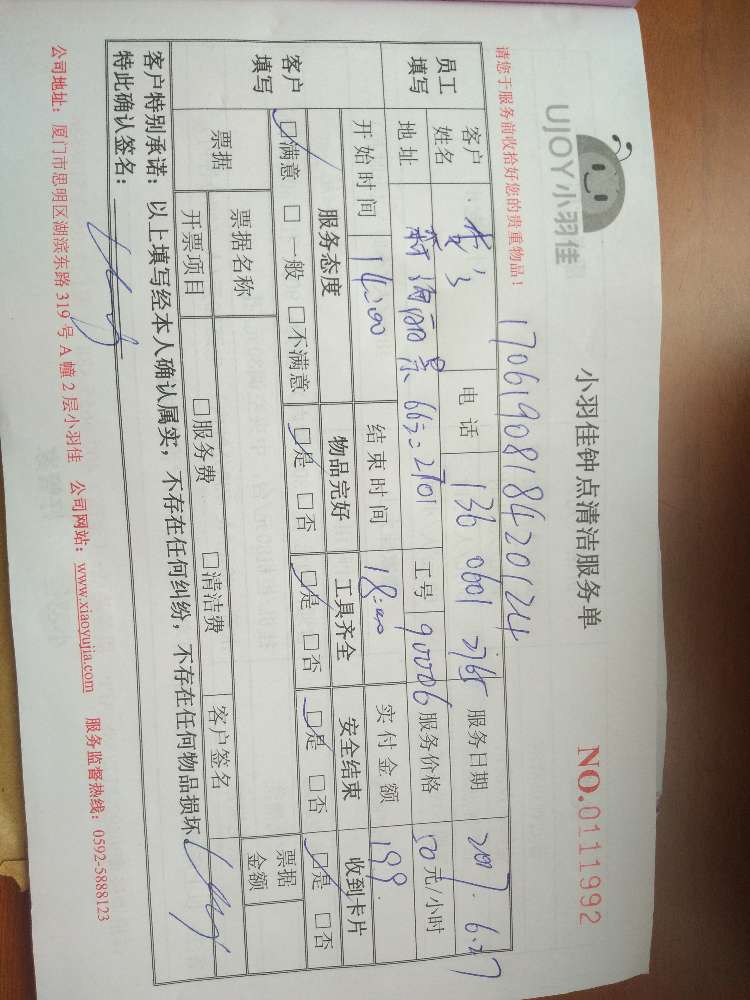 UJOY小羽佳
小羽佳钟点清洁服务单
NO.0111992
请您于服务前收拾好您的贵重物品！
1706190818420124
员工填写
客户姓名
电话 136 0601
服务日期 2017. 6.27
地址 新海丽景 662 2701
工号 90006
服务价格 50元/小时
开始时间 14:00
结束时间 18:00
实付金额 199.
客户填写
服务态度 物品完好 工具齐全 安全结束 收到卡片
☑满意 □一般 □不满意 ☑是 □否 ☑是 □否 ☑是 □否 ☑是 □否
票据
票据名称
票据金额
开票项目 □服务费 □清洁费 客户签名
客户特别承诺：以上填写经本人确认属实，不存在任何纠纷，不存在任何物品损坏
特此确认签名：
公司地址：厦门市思明区湖滨东路 319 号 A 幢 2 层小羽佳 公司网站：www.xiaoyujia.com 服务监督热线：0592-5888123